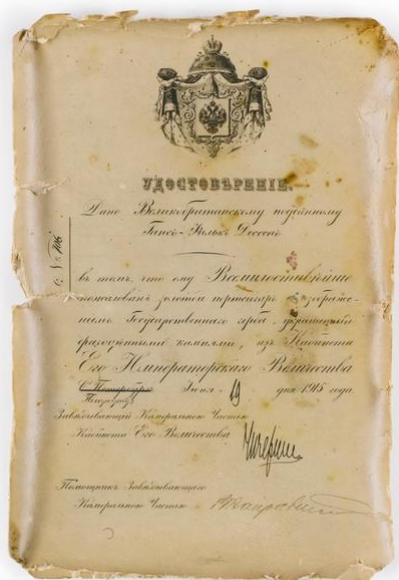 УДОСТОВѢРЕНІЕ.
Дано Великобританскому подданному
въ томъ, что ему Всемилостивѣйше
пожалованъ золотой портсигаръ съ изображе-
ніемъ Государственнаго герба, украшенный
драгоцѣнными камнями, изъ Кабинета
Его Императорскаго Величества
С. Петербургъ Іюня 19 дня 1915 года.
Петроградъ
Завѣдывающій Камеральною Частью
Кабинета Его Величества
Помощникъ Завѣдывающаго
Камеральною Частью